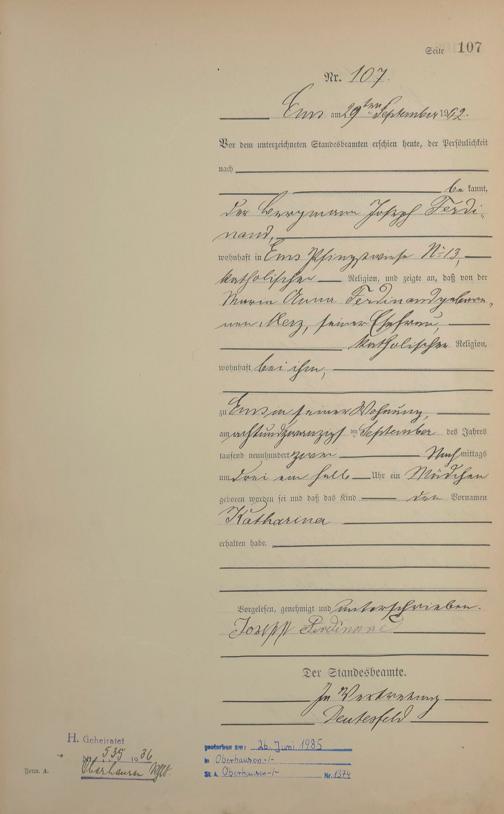 Seite 107
Nr. 107.
Ems am 29ten September 1902.
Vor dem unterzeichneten Standesbeamten erschien heute, der Persönlichkeit
nach
be kannt,
der Bergmann Joseph Ferdi-
nand,
wohnhaft in Ems Pfingstwiese No 13,
katholischer Religion, und zeigte an, daß von der
Maria Anna Ferdinand gebore-
nen Merz, seiner Ehefrau,
katholischer Religion,
wohnhaft bei ihm,
zu Ems in seiner Wohnung,
am achtundzwanzigsten September des Jahres
tausend neunhundert zwei Nachmittags
um drei ein halb Uhr ein Mädchen
geboren worden sei und daß das Kind den Vornamen
Katharina
erhalten habe.
Vorgelesen, genehmigt und unterschrieben.
Joseph Ferdinand
Der Standesbeamte.
In Vertretung
H. Geheiratet
535 1936
Oberhausen
gestorben am: 26. Juni 1985
in Oberhausen -/-
St. A. Oberhausen -/- Nr. 1374
Form. A.